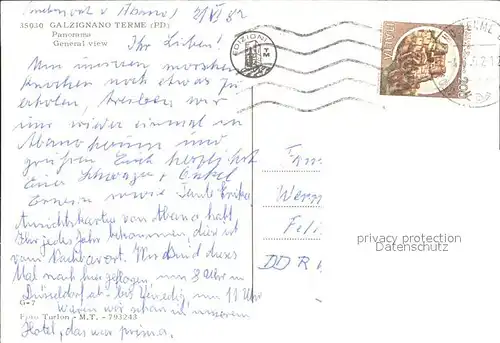 35030 GALZIGNANO TERME (PD)
Panorama
General view
Ihr Lieben!
Um unseren morschen
Knochen noch etwas zu
erholen, treiben wir
uns wieder einmal in
Abano herum und
grüßen Euch herzlichst
Eure Schwager + Onkel
sowie Tante Erika
Ansichtskarten von Abano habt
Ihr jedes Jahr bekommen, dies ist
vom Nachbarort. Wir sind dieses
Mal nach hier geflogen, um 8 Uhr in
Düsseldorf ab - bis Venedig, um 11 Uhr
waren wir schon in unserem
Hotel, das war prima.
G-7
Foto Turlon - M.T. - 793243
EDIZIONI
MT
ITALIA
200
Wern
Feli
DDR
privacy protection
Datenschutz